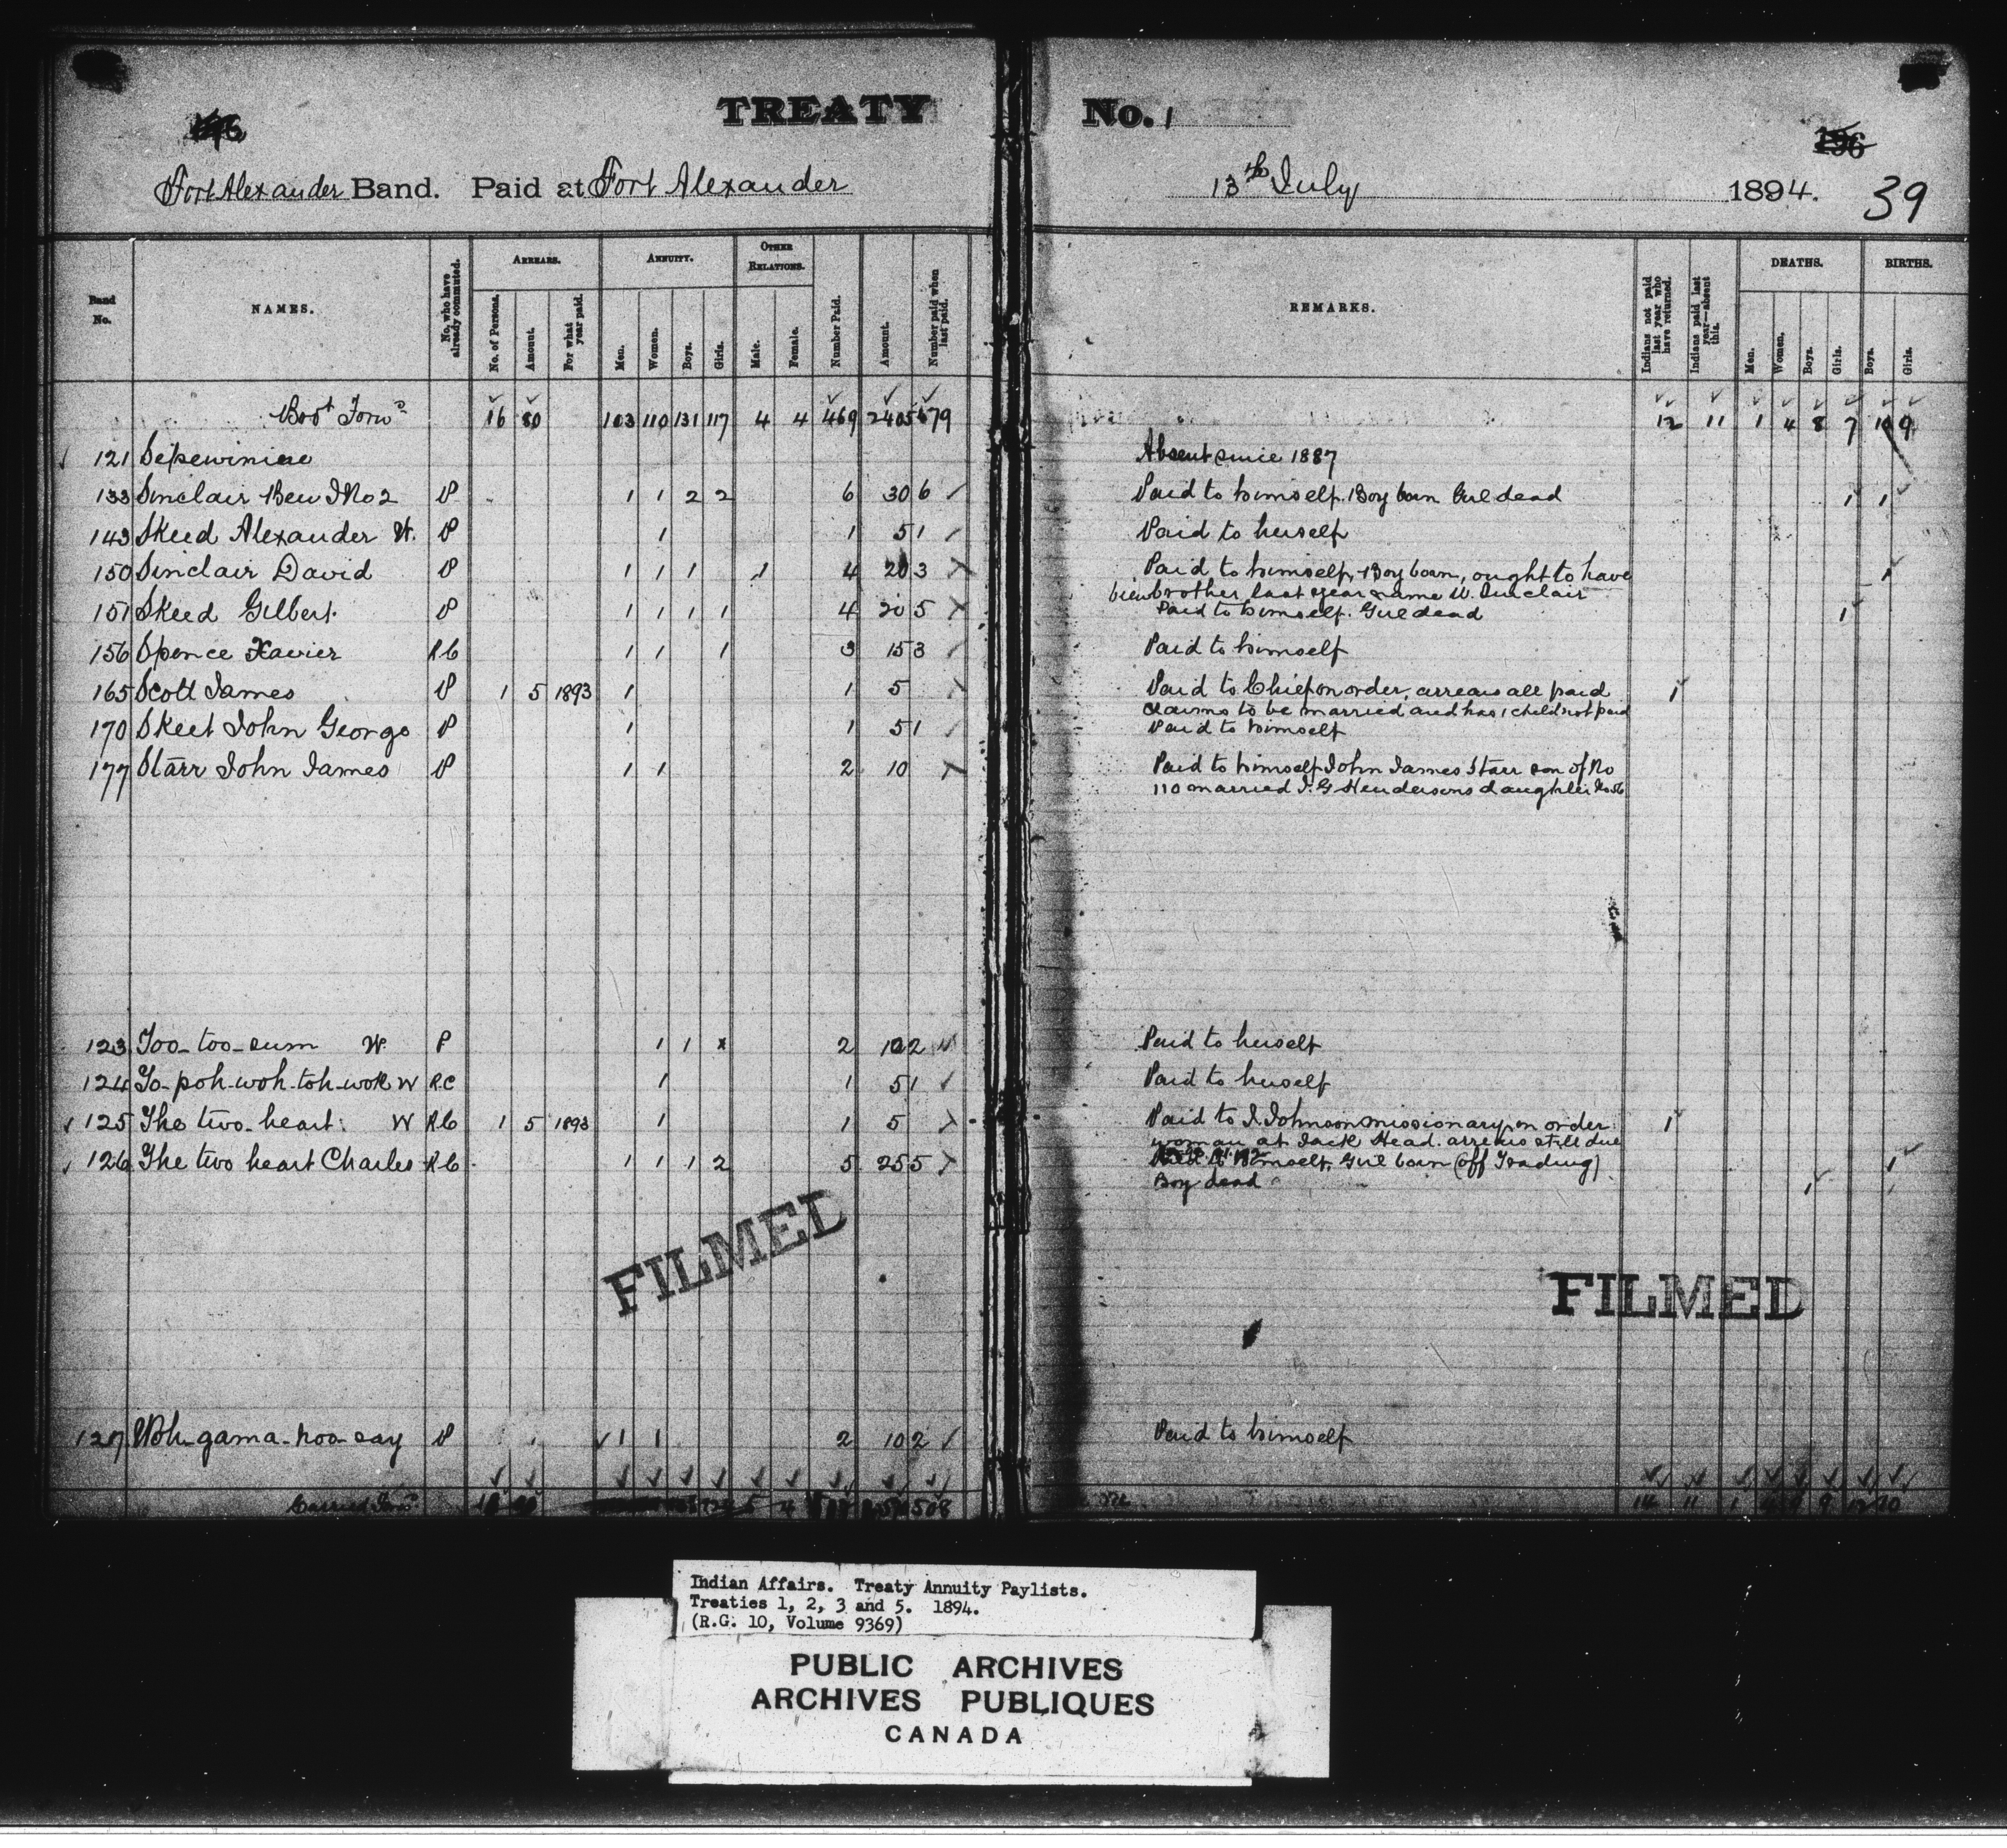 TREATY No. 1
196
196
Fort Alexander Band. Paid at Fort Alexander 13th July 1894. 39
Band No. NAMES. No. who have already commuted. ARREARS. No. of Persons. Amount. For what year paid. ANNUITY. Men. Women. Boys. Girls. OTHER RELATIONS. Male. Female. Number Paid. Amount. Number paid when last paid. REMARKS. Indians not paid last year who have returned. Indians paid last year—absent this. DEATHS. Men. Women. Boys. Girls. BIRTHS. Boys. Girls.
Bro't Forwd 16 80 103 110 131 117 4 4 469 2405 479 12 11 1 4 8 7 9
121 Absent since 1887
133 Sinclair Ben J No 2 P 1 1 2 2 6 30 6 Paid to himself. Boy born Girl dead 1 1
143 Skeed Alexander W. P 1 1 5 1 Paid to herself
150 Sinclair David P 1 1 1 1 4 20 3 Paid to himself, Boy born, ought to have 1
been brother last year name W. Sinclair
151 Skeed Gilbert P 1 1 1 1 4 20 5 Paid to himself. Girl dead 1
156 Spence Xavier RC 1 1 1 3 15 3 Paid to himself
165 Scott James P 1 5 1893 1 1 5 Paid to Chief on order, arrears all paid 1
claims to be married and has 1 child not paid
170 Skeet John George P 1 1 5 1 Paid to himself
177 Starr John James P 1 1 2 10 Paid to himself John James Starr son of No
110 married J. G Hendersons daughter No 56
123 Too-too-sum W P 1 1 x 2 10 2 Paid to herself
124 To-poh-woh-toh-wok W R.C 1 1 5 1 Paid to herself
125 The two-heart W RC 1 5 1893 1 1 5 Paid to J. Johnson missionary on order 1
woman at Jack Head. arrears still due
126 The two heart Charles RC 1 1 1 2 5 25 5 himself, Girl born (off Trading) 1
Boy dead 1
FILMED
FILMED
127 Woh-gama-hoo-say P 1 1 2 10 2 Paid to himself
Carried Forwd 5 4 508 14 11 1 9 10
Indian Affairs. Treaty Annuity Paylists.
Treaties 1, 2, 3 and 5. 1894.
(R.G. 10, Volume 9369)
PUBLIC ARCHIVES
ARCHIVES PUBLIQUES
CANADA